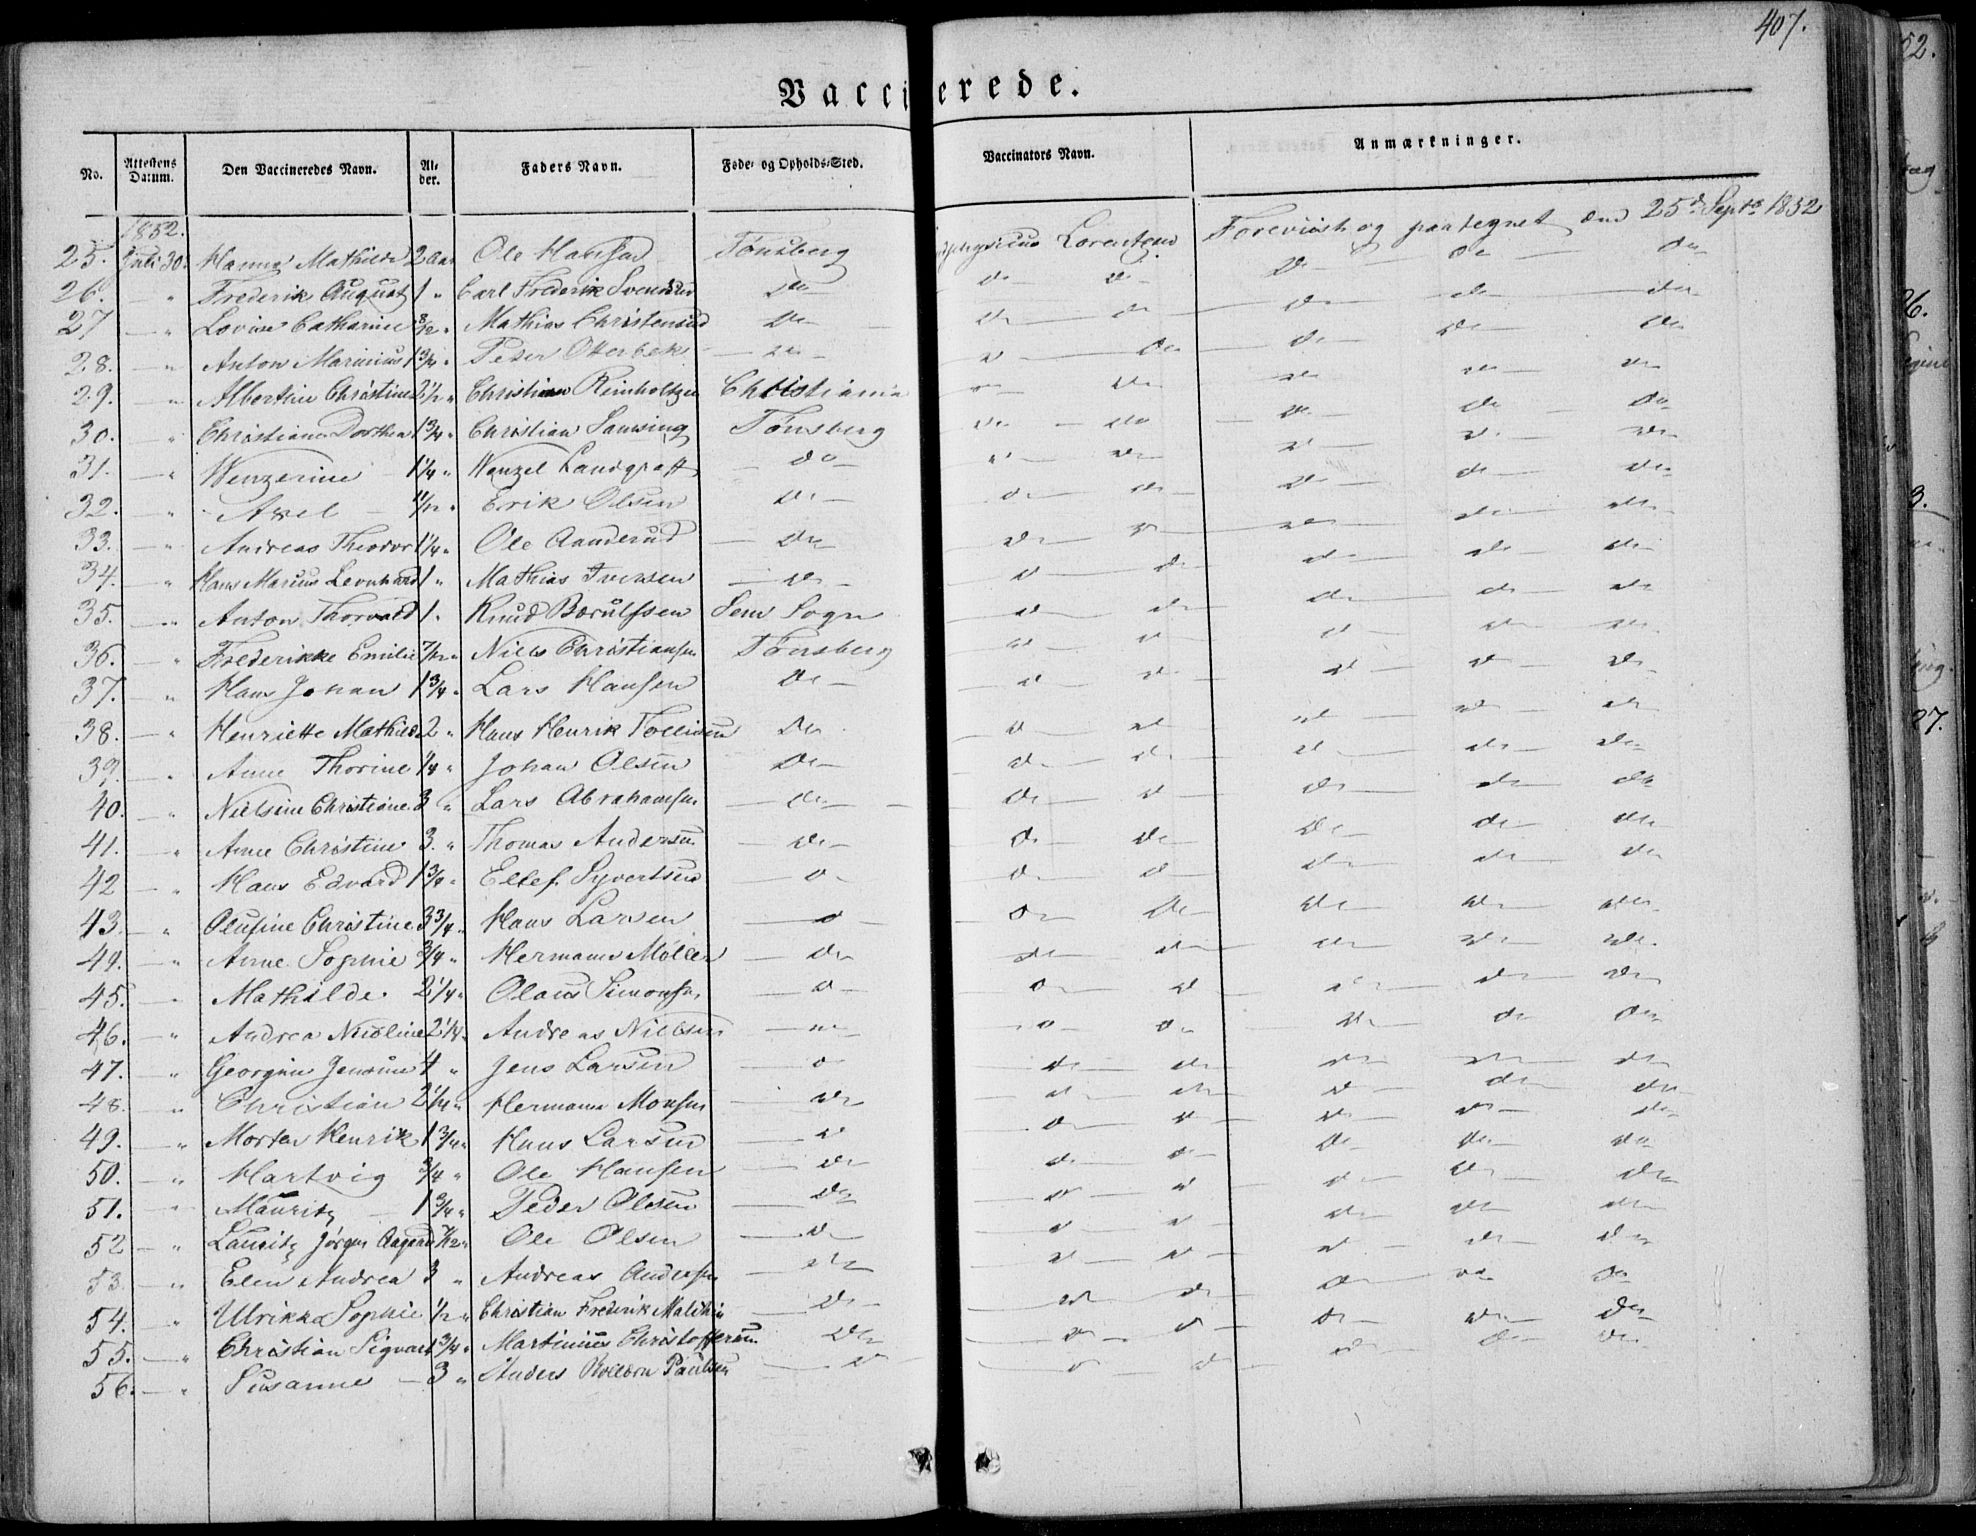 407.
Vaccinerede.
No. Attestens Datum. Den Vaccineredes Navn. Alder. Faders Navn. Føde- og Opholds-Sted. Vaccinators Navn. Anmærkninger.
1852.
25. Juli 30. Hanna Mathilde 2 Aar Ole Hansen Tønsberg Lorentzen Foreviist og paategnet den 25d Septr 1852
26. — " Frederik August 1 " Carl Frederik Svendsen do do do do do do
27 — " Lovise Catharine 8/12 " Mathias Christensen do do do do do do
28. — " Anton Marinius 1 3/4 " Peter Otterbek do do do do do do
29. — " Albertine Christine 2 1/2 " Christian Reinholtzen Christiania do do do do do
30. — " Christiane Dorthea 1 3/4 " Christian Lansing Tønsberg do do do do do
31. — " Wenzerine 1 1/4 " Wenzel Landgraff do do do do do do
32. — " Axel 11/12 " Erik Olsen do do do do do do
33. — " Andreas Theodor 1 1/4 " Ole Aanderud do do do do do do
34. — " Hans Marius Leonhard 1 " Mathias Iversen do do do do do do
35. — " Anton Thorvald 1 " Knud Børulfsen Sem Sogn do do do do do
36. — " Frederikke Emilie 7/12 " Niels Christiansen Tønsberg do do do do do
37. — " Hans Johan 1 3/4 " Lars Hansen do do do do do do
38. — " Henriette Mathilde 2 " Hans Henrik Tollefsen do do do do do do
39. — " Anne Thorine 1/4 " Johan Olsen do do do do do do
40. — " Nielsine Christiane 3 " Lars Abrahamsen do do do do do do
41. — " Anne Christine 3. " Thomas Andersen do do do do do do
42 — " Hans Edvard 1 3/4 " Ellef Syvertsen do do do do do do
43. — " Olufine Christine 3 3/4 " Hans Larsen do do do do do do
44. — " Anne Sophie 3/4 " Hermann Møller do do do do do do
45. — " Mathilde 2 1/4 " Olaus Simonsen do do do do do do
46. — " Andrea Nicoline 2 1/4 " Andreas Nielsen do do do do do do
47. — " Georgine Jensine 4 " Jens Larsen do do do do do do
48. — " Christian 2 1/4 " Hermann Monsen do do do do do do
49. — " Morten Henrik 1 3/4 " Hans Larsen do do do do do do
50. — " Hartvig 3/4 " Ole Hansen do do do do do do
51. — " Mauritz 1 3/4 " Peder Olsen do do do do do do
52 — " Lauritz Jørgen 7/12 " Ole Olsen do do do do do do
53. — " Elen Andrea 3 " Andreas Andersen do do do do do do
54. — " Ulrikka Sophie 1/2 " Christian Frederik do do do do do do
55. — " Christian Sigvart 1 3/4 " Martinius Christoffersen do do do do do do
56. — " Susanne — 3 " Anders Paulsen do do do do do do
52.
26.
3.
27.